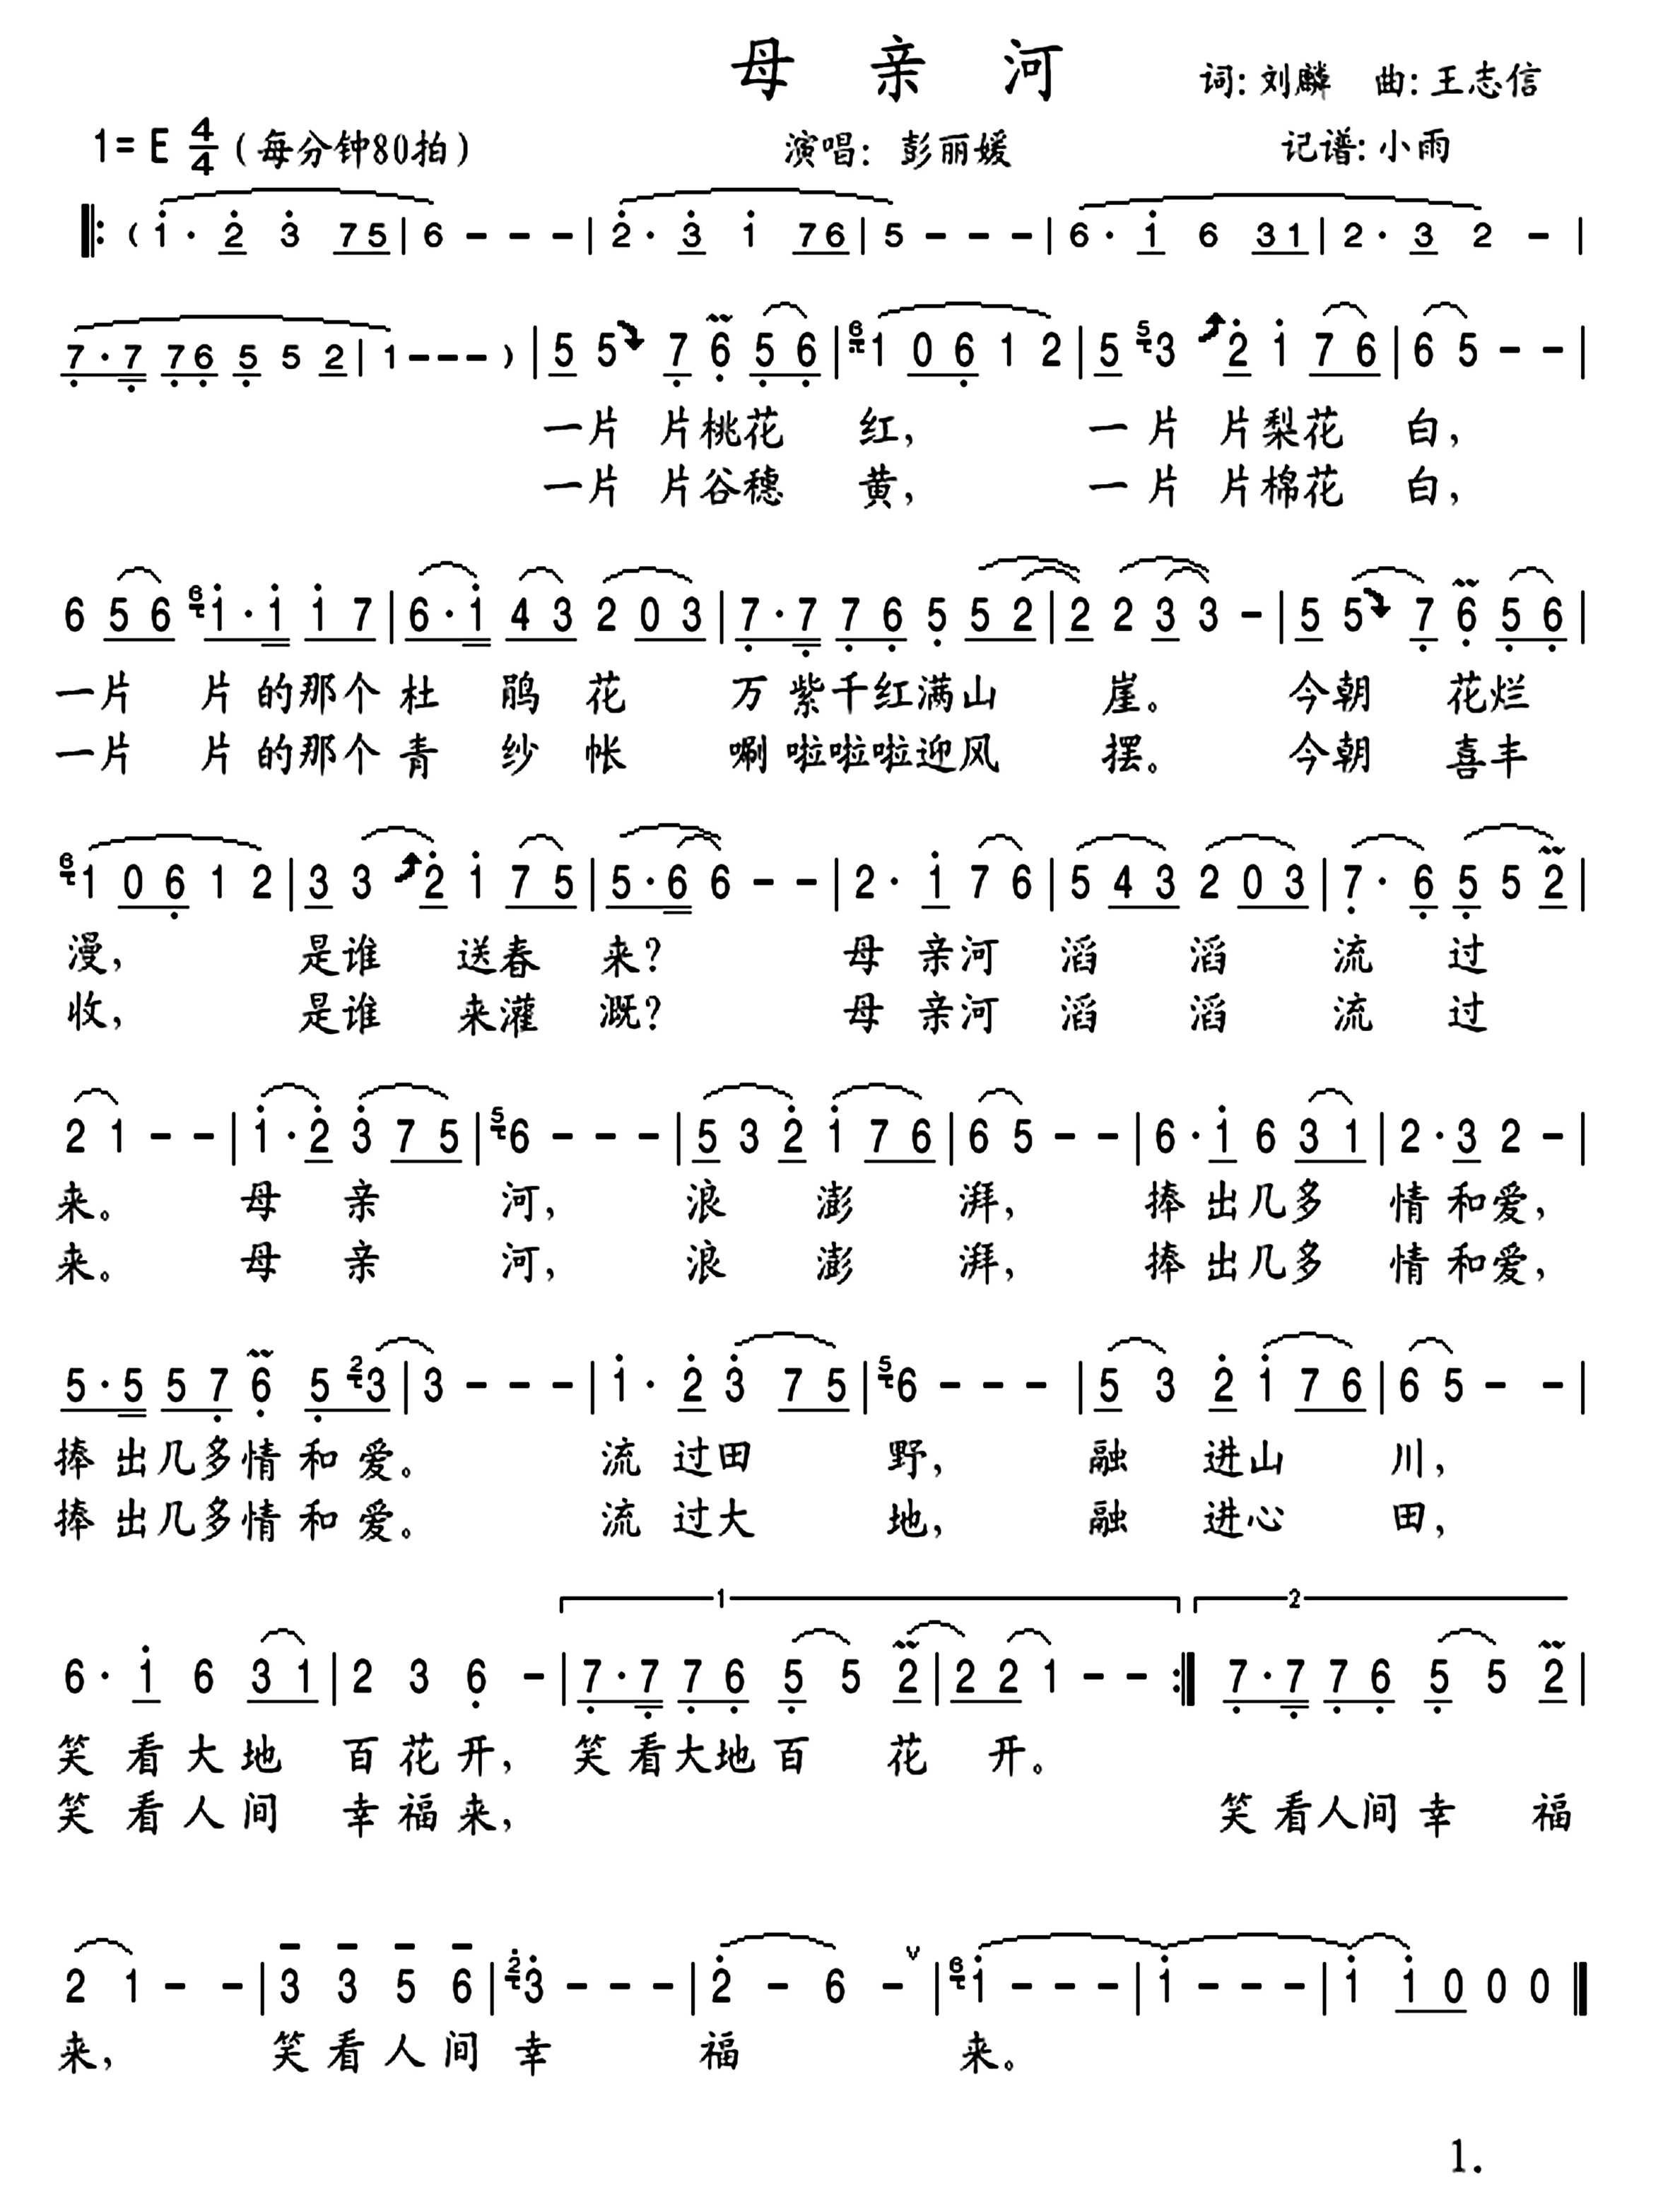 母 亲 河 词: 刘麟 曲: 王志信
1= E 4/4 (每分钟80拍) 演唱: 彭丽媛 记谱: 小雨
‖: ( i · 2 3 7 5 | 6 - - - | 2 · 3 i 7 6 | 5 - - - | 6 · i 6 3 1 | 2 · 3 2 - |
7 · 7 7 6 5 5 2 | 1 - - - ) | 5 5 7 6 5 6 | 6 1 0 6 1 2 | 5 5 3 2 i 7 6 | 6 5 - - |
一片 片桃花 红, 一 片 片梨花 白,
一片 片谷穗 黄, 一 片 片棉花 白,
6 5 6 6 i · i i 7 | 6 · i 4 3 2 0 3 | 7 · 7 7 6 5 5 2 | 2 2 3 3 - | 5 5 7 6 5 6 |
一片 片 的那个 杜 鹃 花 万 紫千红满山 崖。 今朝 花烂
一片 片 的那个 青 纱 帐 唰 啦啦啦迎风 摆。 今朝 喜丰
6 1 0 6 1 2 | 3 3 2 i 7 5 | 5 · 6 6 - - | 2 · i 7 6 | 5 4 3 2 0 3 | 7 · 6 5 5 2 |
漫, 是谁 送春 来? 母 亲河 滔 滔 流 过
收, 是谁 来灌 溉? 母 亲河 滔 滔 流 过
2 1 - - | i · 2 3 7 5 | 5 6 - - - | 5 3 2 i 7 6 | 6 5 - - | 6 · i 6 3 1 | 2 · 3 2 - |
来。 母 亲 河, 浪 澎 湃, 捧 出几多 情 和爱,
来。 母 亲 河, 浪 澎 湃, 捧 出几多 情 和爱,
5 · 5 5 7 6 5 2 3 | 3 - - - | i · 2 3 7 5 | 5 6 - - - | 5 3 2 i 7 6 | 6 5 - - |
捧 出几多情 和 爱。 流 过田 野, 融 进山 川,
捧 出几多情 和 爱。 流 过大 地, 融 进心 田,
1 2
6 · i 6 3 1 | 2 3 6 - | 7 · 7 7 6 5 5 2 | 2 2 1 - - :‖ 7 · 7 7 6 5 5 2 |
笑 看 大 地 百 花 开, 笑 看大地 百 花 开。
笑 看 人 间 幸 福 来, 笑 看人间 幸 福
2 1 - - | 3 3 5 6 | 2 3 - - - | 2 - 6 - ∨ | 6 i - - - | i - - - | i i 0 0 0 ‖
来, 笑 看 人 间 幸 福 来。
1.